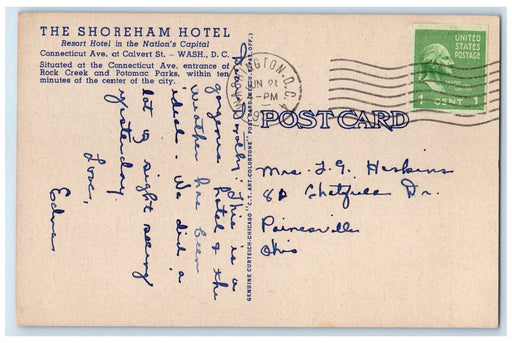 THE SHOREHAM HOTEL
Resort Hotel in the Nation's Capital
Connecticut Ave. at Calvert St. – WASH., D. C.
Situated at the Connecticut Ave. entrance of
Rock Creek and Potomac Parks, within ten
minutes of the center of the city.
This is a
gorgeous hotel & the
weather has been
ideal. We did a
lot of sight seeing
yesterday.
Love,
Edna
GENUINE CURTEICH-CHICAGO "C.T. ART-COLORTONE" POST CARD (REG. U.S. PAT. OFF.)
WASHINGTON, D.C.
JUN 21
-PM
UNITED
STATES
POSTAGE
1 CENT 1
POST CARD
Mrs. L. G. Haskins
Dr.
Painesville
Ohio